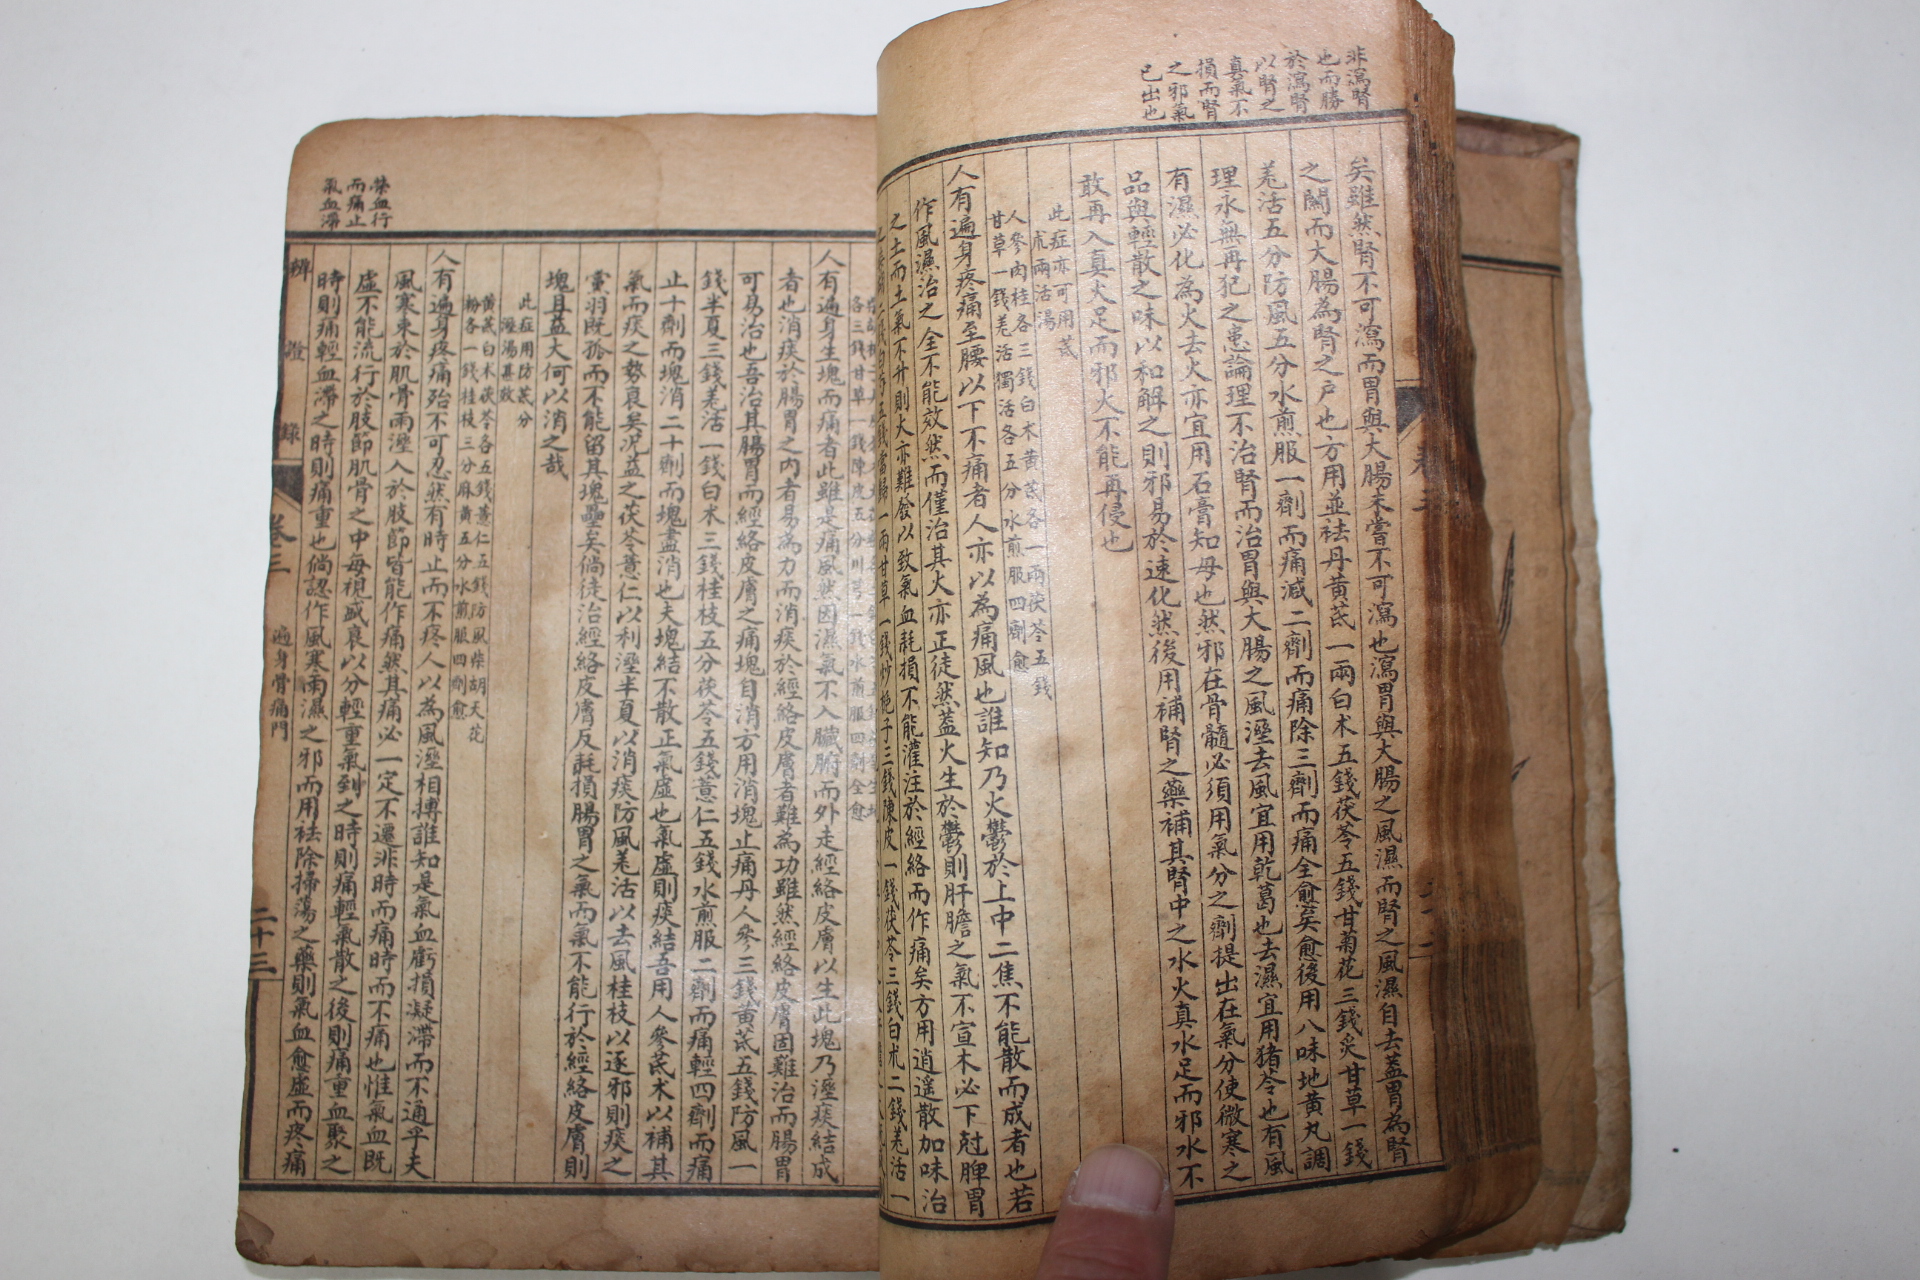 非瀉腎
也而勝
於瀉腎
以腎之
真氣不
損而腎
之邪氣
已出也
矣雖然腎不可瀉而胃與大腸未嘗不可瀉也瀉胃與大腸之風濕而腎之風濕自去蓋胃為腎
之關而大腸為腎之戶也方用並祛丹黃芪一兩白朮五錢茯苓五錢甘菊花三錢炙甘草一錢
羌活五分防風五分水煎服一劑而痛減二劑而痛除三劑而痛全愈矣愈後用八味地黃丸調
理永無再犯之患論理不治腎而治胃與大腸之風溼去風宜用乾葛也去濕宜用猪苓也有風
有濕必化為火去火亦宜用石膏知母也然邪在骨髓必須用氣分之劑提出在氣分使微寒之
品與輕散之味以和解之則邪易於速化然後用補腎之藥補其腎中之水火真水足而邪水不
敢再入真火足而邪火不能再侵也
此症亦可用芪
朮兩活湯
人參肉桂各三錢白朮黃芪各一兩茯苓五錢
甘草一錢羌活獨活各五分水煎服四劑愈
人有遍身疼痛至腰以下不痛者人亦以為痛風也誰知乃火鬱於上中二焦不能散而成者也若
作風濕治之全不能效然而僅治其火亦正徒然蓋火生於鬱則肝膽之氣不宣木必下尅脾胃
之土而土氣不升則大亦難發以致氣血耗損不能灌注於經絡而作痛矣方用逍遙散加味治
一兩甘草一錢炒梔子三錢陳皮一錢茯苓三錢白朮二錢羌活一
各三錢甘草一錢陳皮五分川芎一錢水煎服四劑全愈
人有遍身生塊而痛者此雖是痛風然因濕氣不入臟腑而外走經絡皮膚以生此塊乃溼痰結成
者也消痰於腸胃之內者易為力而消痰於經絡皮膚者難為功雖然經絡皮膚固難治而腸胃
可易治也吾治其腸胃而經絡皮膚之痛塊自消方用消塊止痛丹人參三錢黃芪五錢防風一
錢半夏三錢羌活一錢白朮三錢桂枝五分茯苓五錢薏仁五錢水煎服二劑而痛輕四劑而痛
止十劑而塊消二十劑而塊盡消也夫塊結不散正氣虛也氣虛則痰結吾用人參芪朮以補其
氣而痰之勢衰矣況益之茯苓薏仁以利溼半夏以消痰防風羌活以去風桂枝以逐邪則痰之
黨羽既孤而不能留其塊壘矣倘徒治經絡皮膚反耗損腸胃之氣而氣不能行於經絡皮膚則
塊且益大何以消之哉
此症用防芪分
溼湯甚效
黃芪白朮茯苓各五錢薏仁五錢防風柴胡天花
粉各一錢桂枝三分麻黃五分水煎服四劑愈
人有遍身疼痛殆不可忍然有時止而不疼人以為風溼相搏誰知是氣血虧損凝滯而不通乎夫
風寒束於肌骨雨溼入於肢節皆能作痛然其痛必一定不遷非時而痛時而不痛也惟氣血既
虛不能流行於肢節肌骨之中每視盛衰以分輕重氣到之時則痛輕氣散之後則痛重血聚之
時則痛輕血滯之時則痛重也倘認作風寒雨濕之邪而用祛除掃蕩之藥則氣血愈虛而疼痛
榮血行
而痛止
氣血滯
辨證錄
卷三
遍身骨痛門
二十三